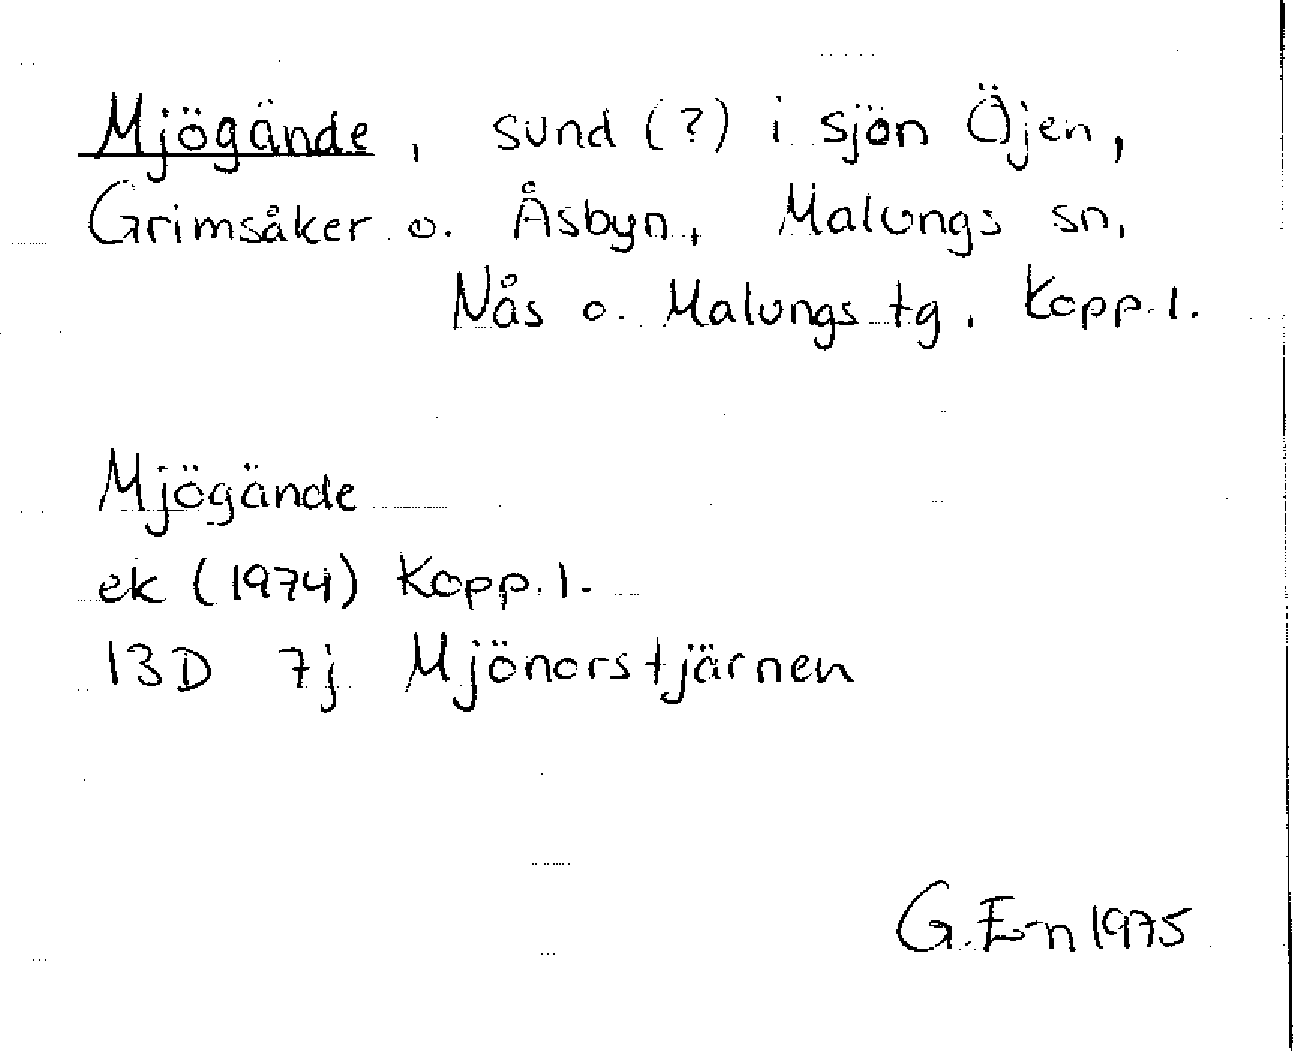 Mjögände, sund (?) i sjön Öjen,
Grimsåker o. Åsbyn, Malungs sn,
Nås o. Malungs tg. Kopp. l.
Mjögände
ek (1974) Kopp. l.
13D 7j Mjönorstjärnen
G.E-n 1975